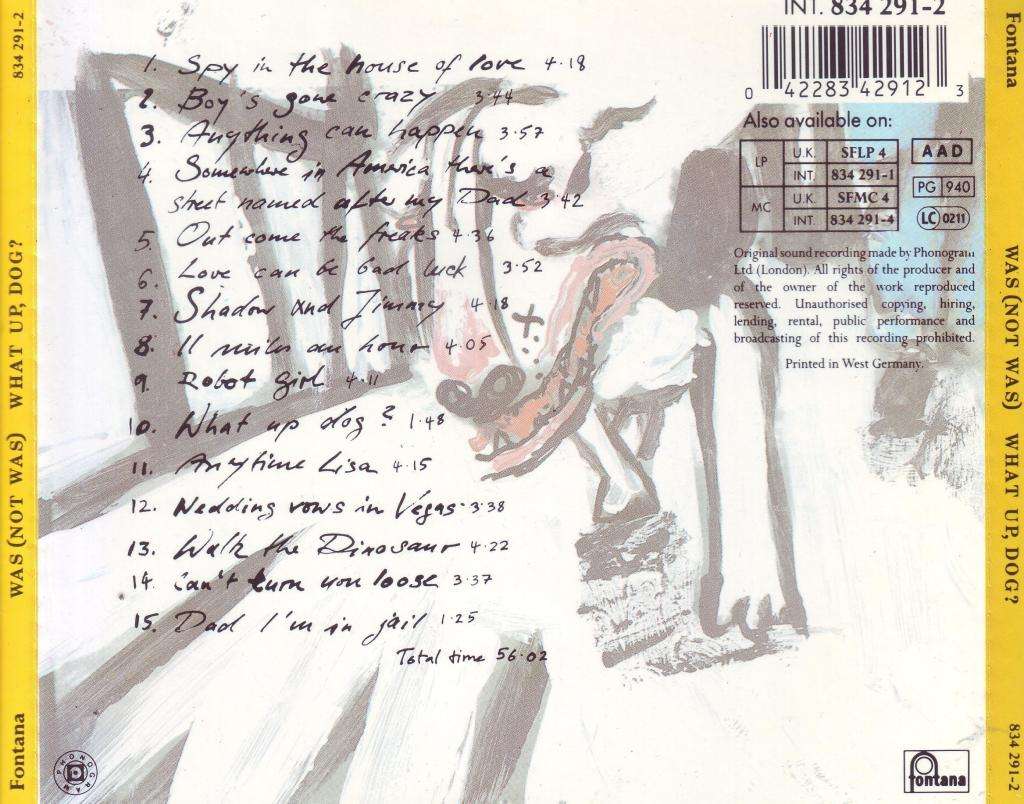 834 291-2
WAS (NOT WAS) WHAT UP, DOG?
Fontana
1. Spy in the house of love 4·18
2. Boy's gone crazy 3·44
3. Anything can happen 3·57
4. Somewhere in America there's a
street named after my Dad 3·42
5. Out come the freaks 4·36
6. Love can be bad luck 3·52
7. Shadow and Jimmy 4·18
8. 11 miles an hour 4·05
9. Robot girl 4·11
10. What up dog? 1·48
11. Anytime Lisa 4·15
12. Wedding vows in Vegas· 3·38
13. Walk the Dinosaur 4·22
14. Can't turn you loose 3·37
15. Dad I'm in jail 1·25
Total time 56·02
INT. 834 291-2
0 42283 42912 3
Also available on:
LP U.K. SFLP 4
INT. 834 291-1
MC U.K. SFMC 4
INT. 834 291-4
AAD
PG 940
LC 0211
Original sound recording made by Phonogram
Ltd (London). All rights of the producer and
of the owner of the work reproduced
reserved. Unauthorised copying, hiring,
lending, rental, public performance and
broadcasting of this recording prohibited.
Printed in West Germany.
PHONOGRAM
fontana
Fontana
WAS (NOT WAS) WHAT UP, DOG?
834 291-2